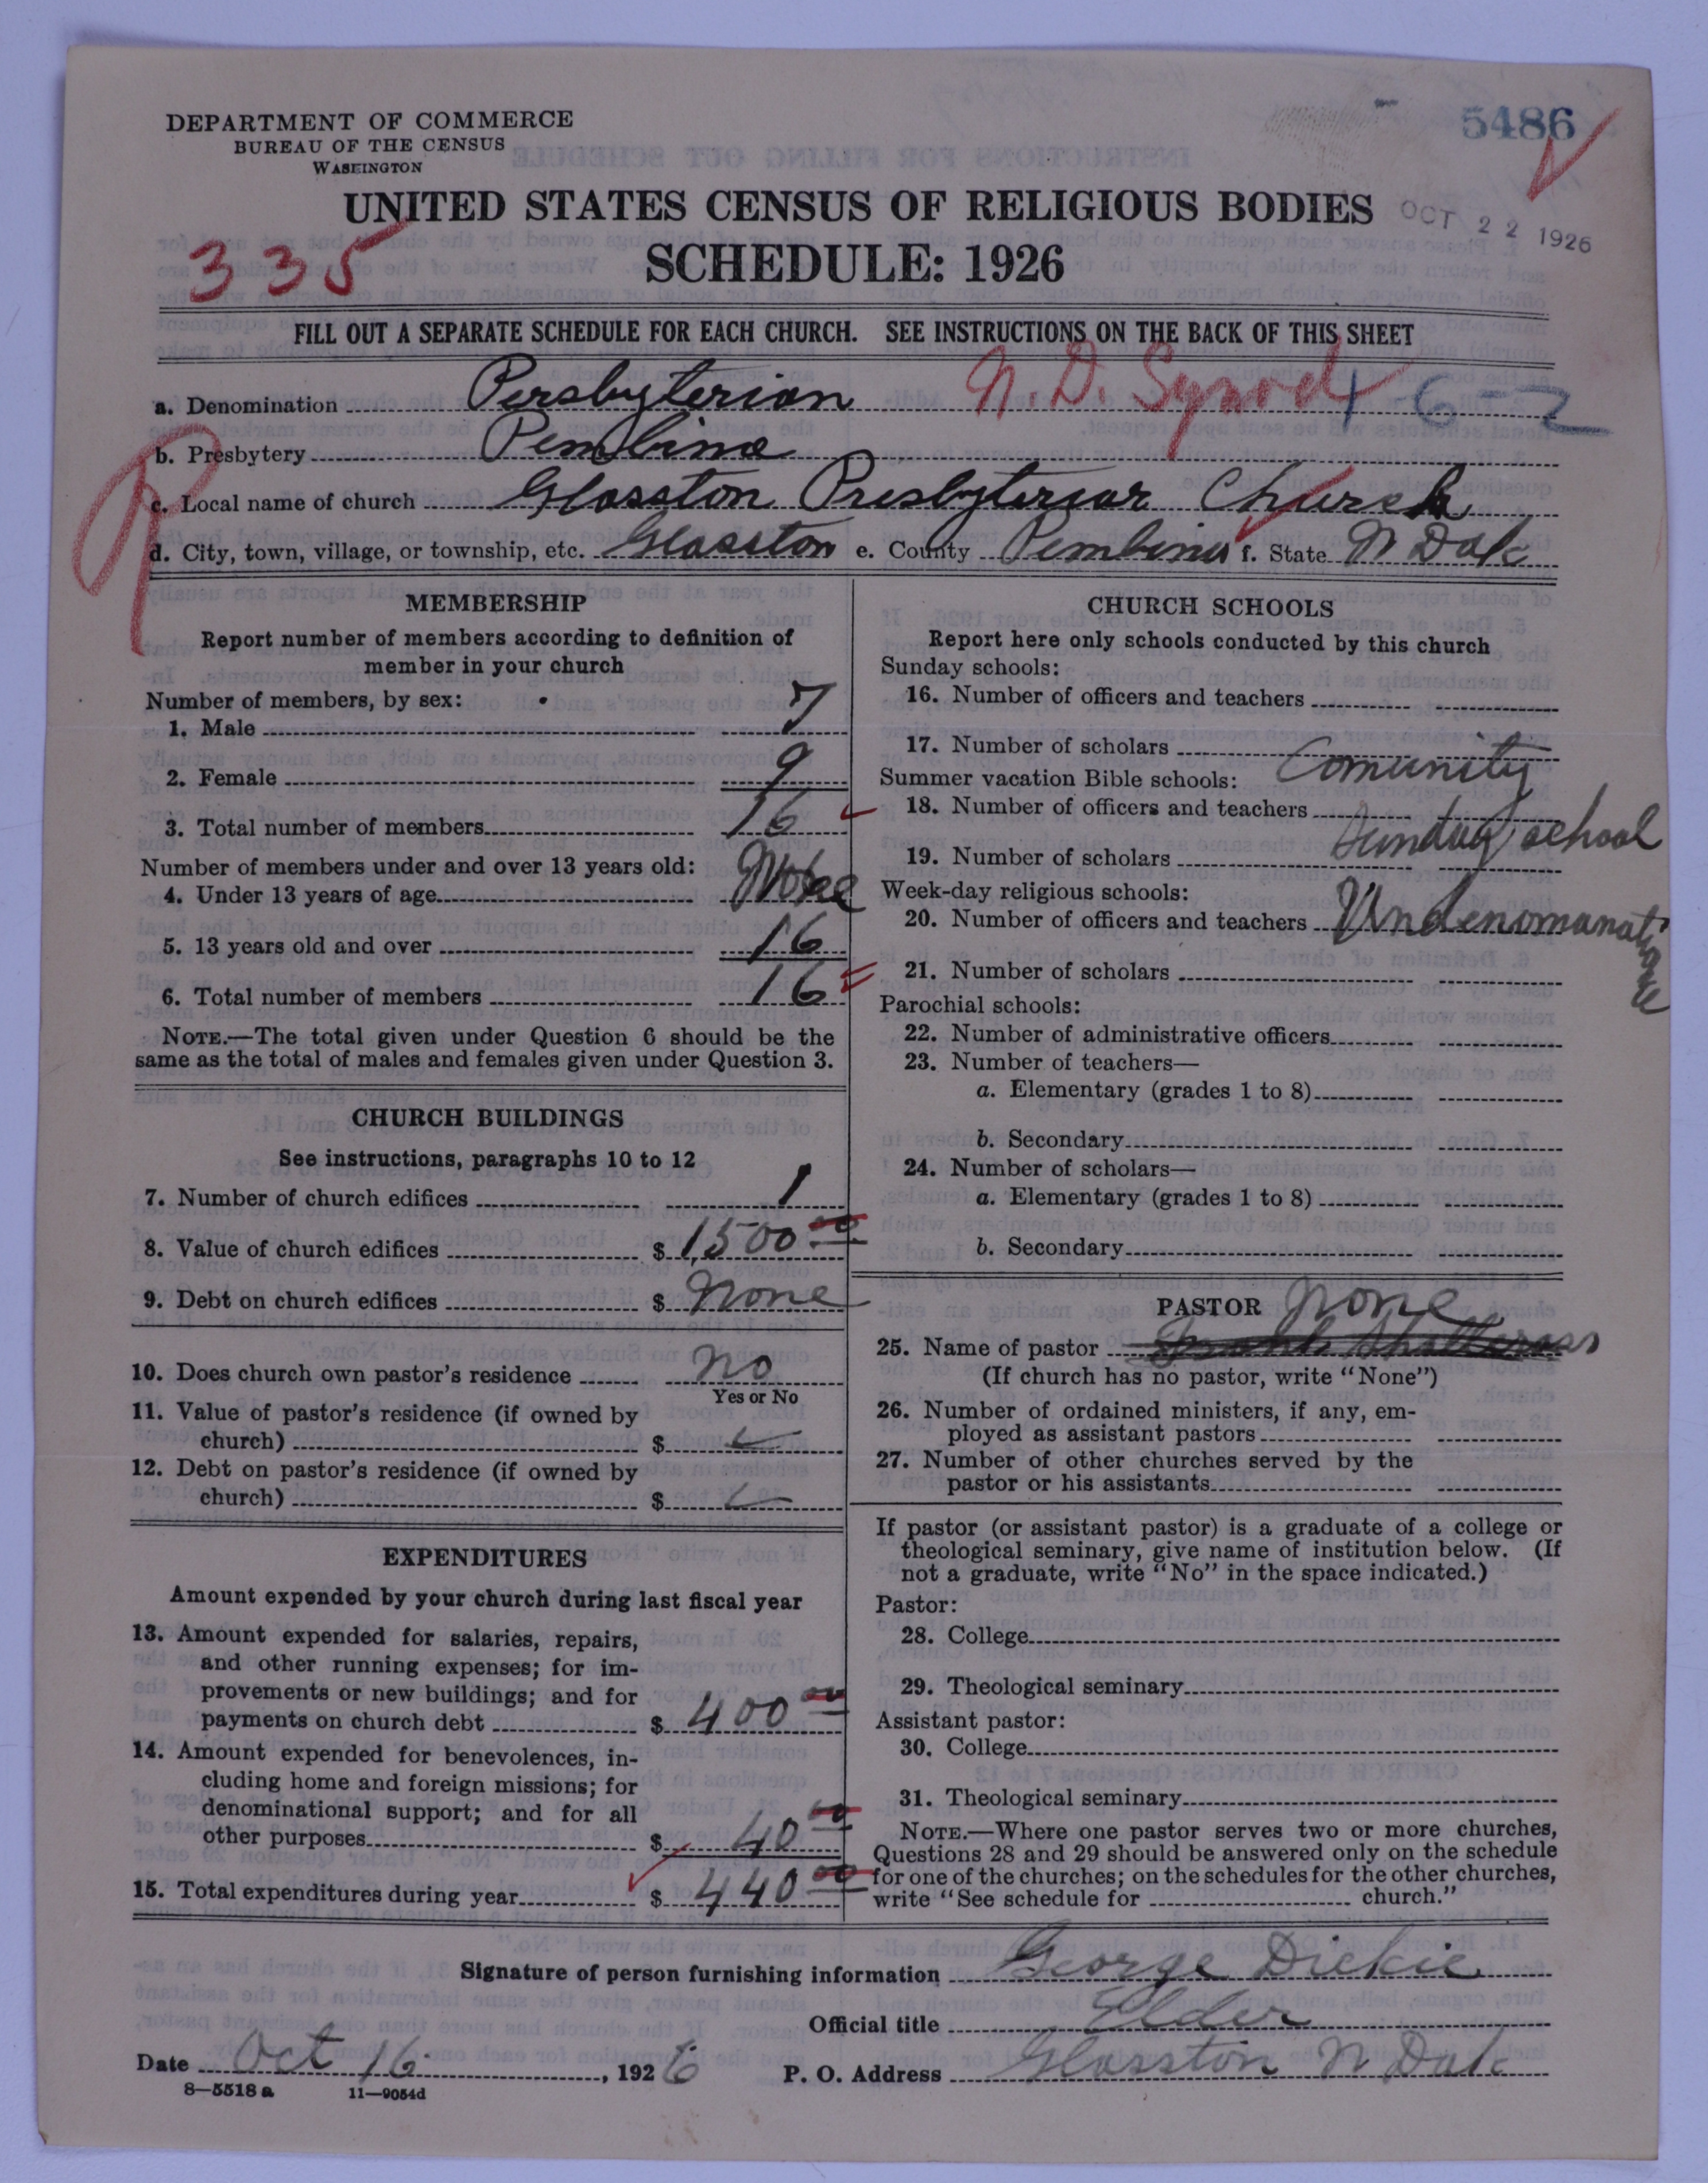 DEPARTMENT OF COMMERCE
BUREAU OF THE CENSUS
WASHINGTON
5486
UNITED STATES CENSUS OF RELIGIOUS BODIES
OCT 22 1926
335
SCHEDULE: 1926
FILL OUT A SEPARATE SCHEDULE FOR EACH CHURCH. SEE INSTRUCTIONS ON THE BACK OF THIS SHEET
a. Denomination Persbyterian N.D. Synod 16-2
b. Presbytery Pembina
c. Local name of church Glasston Presbyterian Church
d. City, town, village, or township, etc. Glasston e. County Pembina f. State N Dak
MEMBERSHIP
Report number of members according to definition of
member in your church
Number of members, by sex:
1. Male 7
2. Female 9
3. Total number of members 16
Number of members under and over 13 years old:
4. Under 13 years of age None
5. 13 years old and over 16
6. Total number of members 16
NOTE.—The total given under Question 6 should be the
same as the total of males and females given under Question 3.
CHURCH BUILDINGS
See instructions, paragraphs 10 to 12
7. Number of church edifices 1
8. Value of church edifices $ 1500 00
9. Debt on church edifices $ None
10. Does church own pastor's residence no
Yes or No
11. Value of pastor's residence (if owned by
church) $
12. Debt on pastor's residence (if owned by
church) $
EXPENDITURES
Amount expended by your church during last fiscal year
13. Amount expended for salaries, repairs,
and other running expenses; for im-
provements or new buildings; and for
payments on church debt $ 400 00
14. Amount expended for benevolences, in-
cluding home and foreign missions; for
denominational support; and for all
other purposes $ 40 00
15. Total expenditures during year $ 440 00
CHURCH SCHOOLS
Report here only schools conducted by this church
Sunday schools:
16. Number of officers and teachers
17. Number of scholars
Comunity
Summer vacation Bible schools:
18. Number of officers and teachers
Sunday school
19. Number of scholars
Week-day religious schools:
20. Number of officers and teachers Undenomanational
21. Number of scholars
Parochial schools:
22. Number of administrative officers
23. Number of teachers—
a. Elementary (grades 1 to 8)
b. Secondary
24. Number of scholars—
a. Elementary (grades 1 to 8)
b. Secondary
PASTOR None
25. Name of pastor
(If church has no pastor, write "None")
26. Number of ordained ministers, if any, em-
ployed as assistant pastors
27. Number of other churches served by the
pastor or his assistants
If pastor (or assistant pastor) is a graduate of a college or
theological seminary, give name of institution below. (If
not a graduate, write "No" in the space indicated.)
Pastor:
28. College
29. Theological seminary
Assistant pastor:
30. College
31. Theological seminary
NOTE.—Where one pastor serves two or more churches,
Questions 28 and 29 should be answered only on the schedule
for one of the churches; on the schedules for the other churches,
write "See schedule for church."
Signature of person furnishing information George Dickie
Official title Elder
Date Oct 16, 1926 P. O. Address Glasston N Dak
8—5518 a 11—9054d